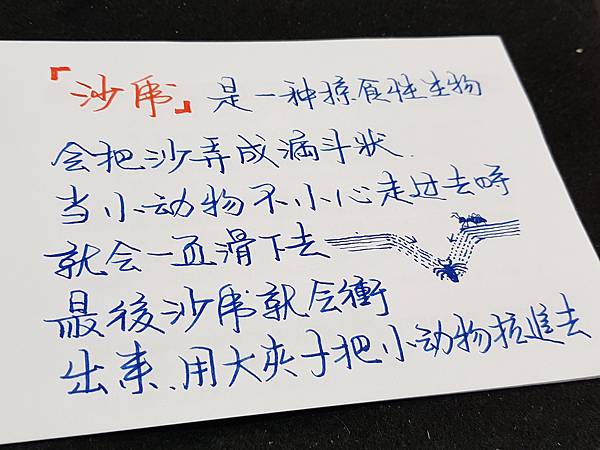 「沙虎」是一种掠食性生物
会把沙弄成漏斗状
当小动物不小心走过去時
就会一直滑下去
最後沙虎就会衝
出来、用大夾子把小动物拉進去